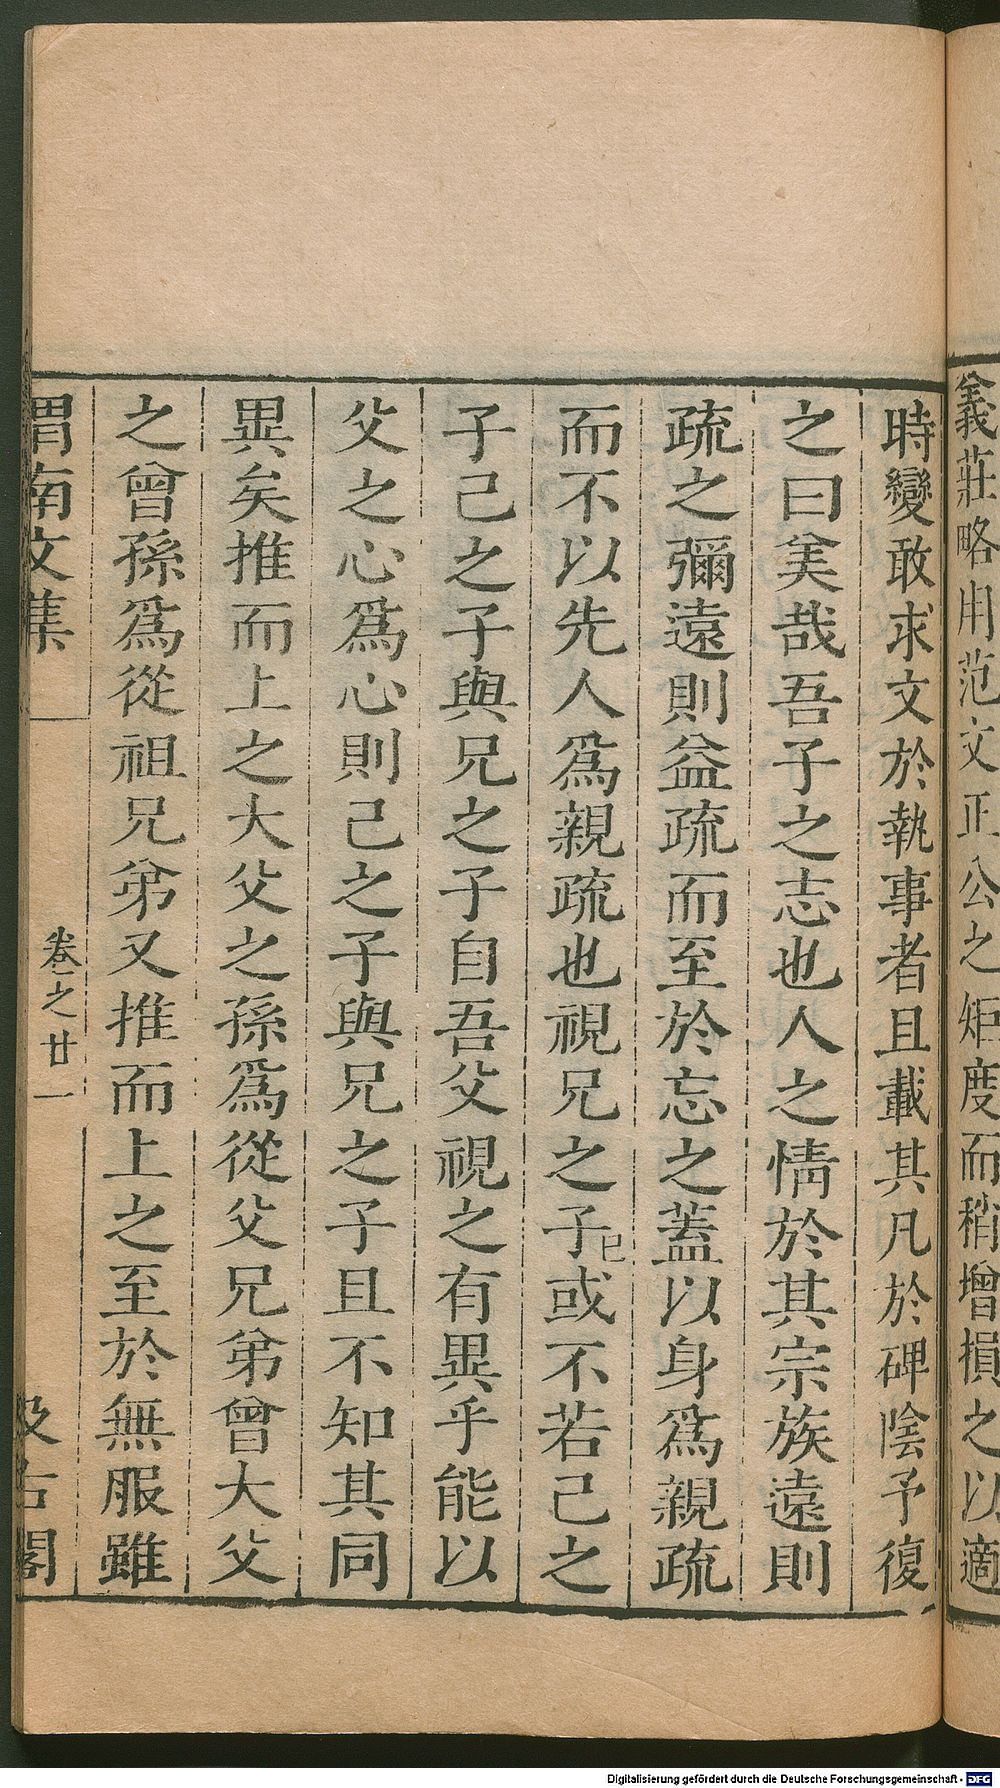 義莊略用范文正公之矩度而稍增損之以適
時變敢求文於執事者且載其凡於碑陰予復
之曰美哉吾子之志也人之情於其宗族遠則
疏之彌遠則益疏而至於忘之蓋以身爲親疏
而不以先人爲親疏也視兄之子已或不若己之
子己之子與兄之子自吾父視之有異乎能以
父之心爲心則己之子與兄之子且不知其同
異矣推而上之大父之孫爲從父兄弟曾大父
之曾孫爲從祖兄弟又推而上之至於無服雖
渭南文集 卷之廿一 汲古閣
Digitalisierung gefördert durch die Deutsche Forschungsgemeinschaft - DFG